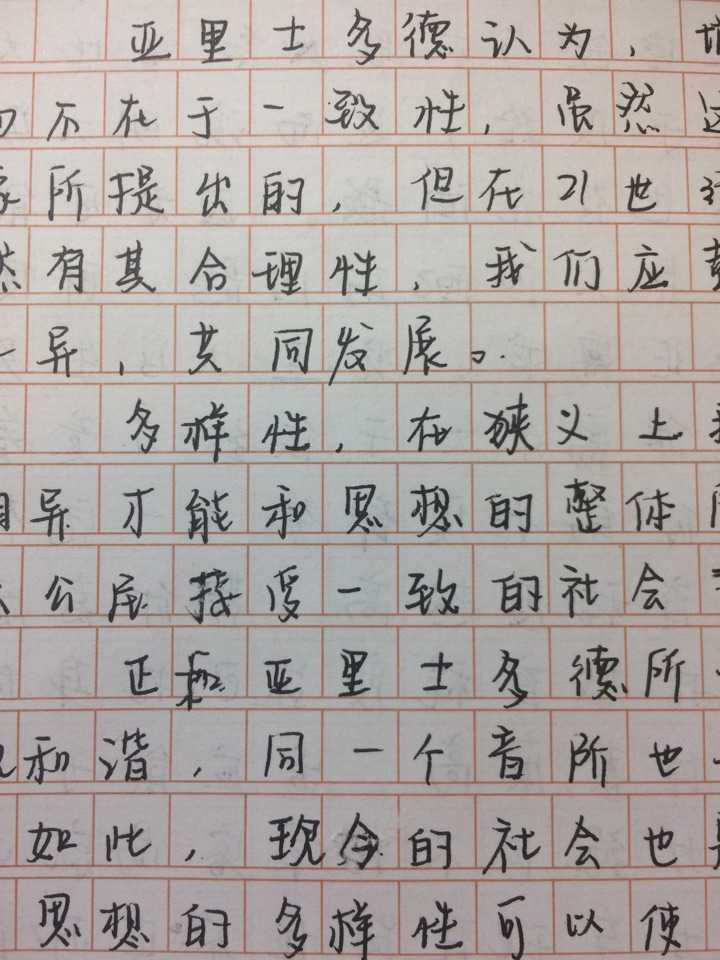 亚里士多德认为,
不在于一致性,虽然
所提出的,但在21世
有其合理性,我们应
异,共同发展。
多样性,在狭义上
异才能和思想的整体
公民接受一致的社会
正和亚里士多德所
和谐,同一个音所也
如此,现今的社会也
思想的多样性可以使